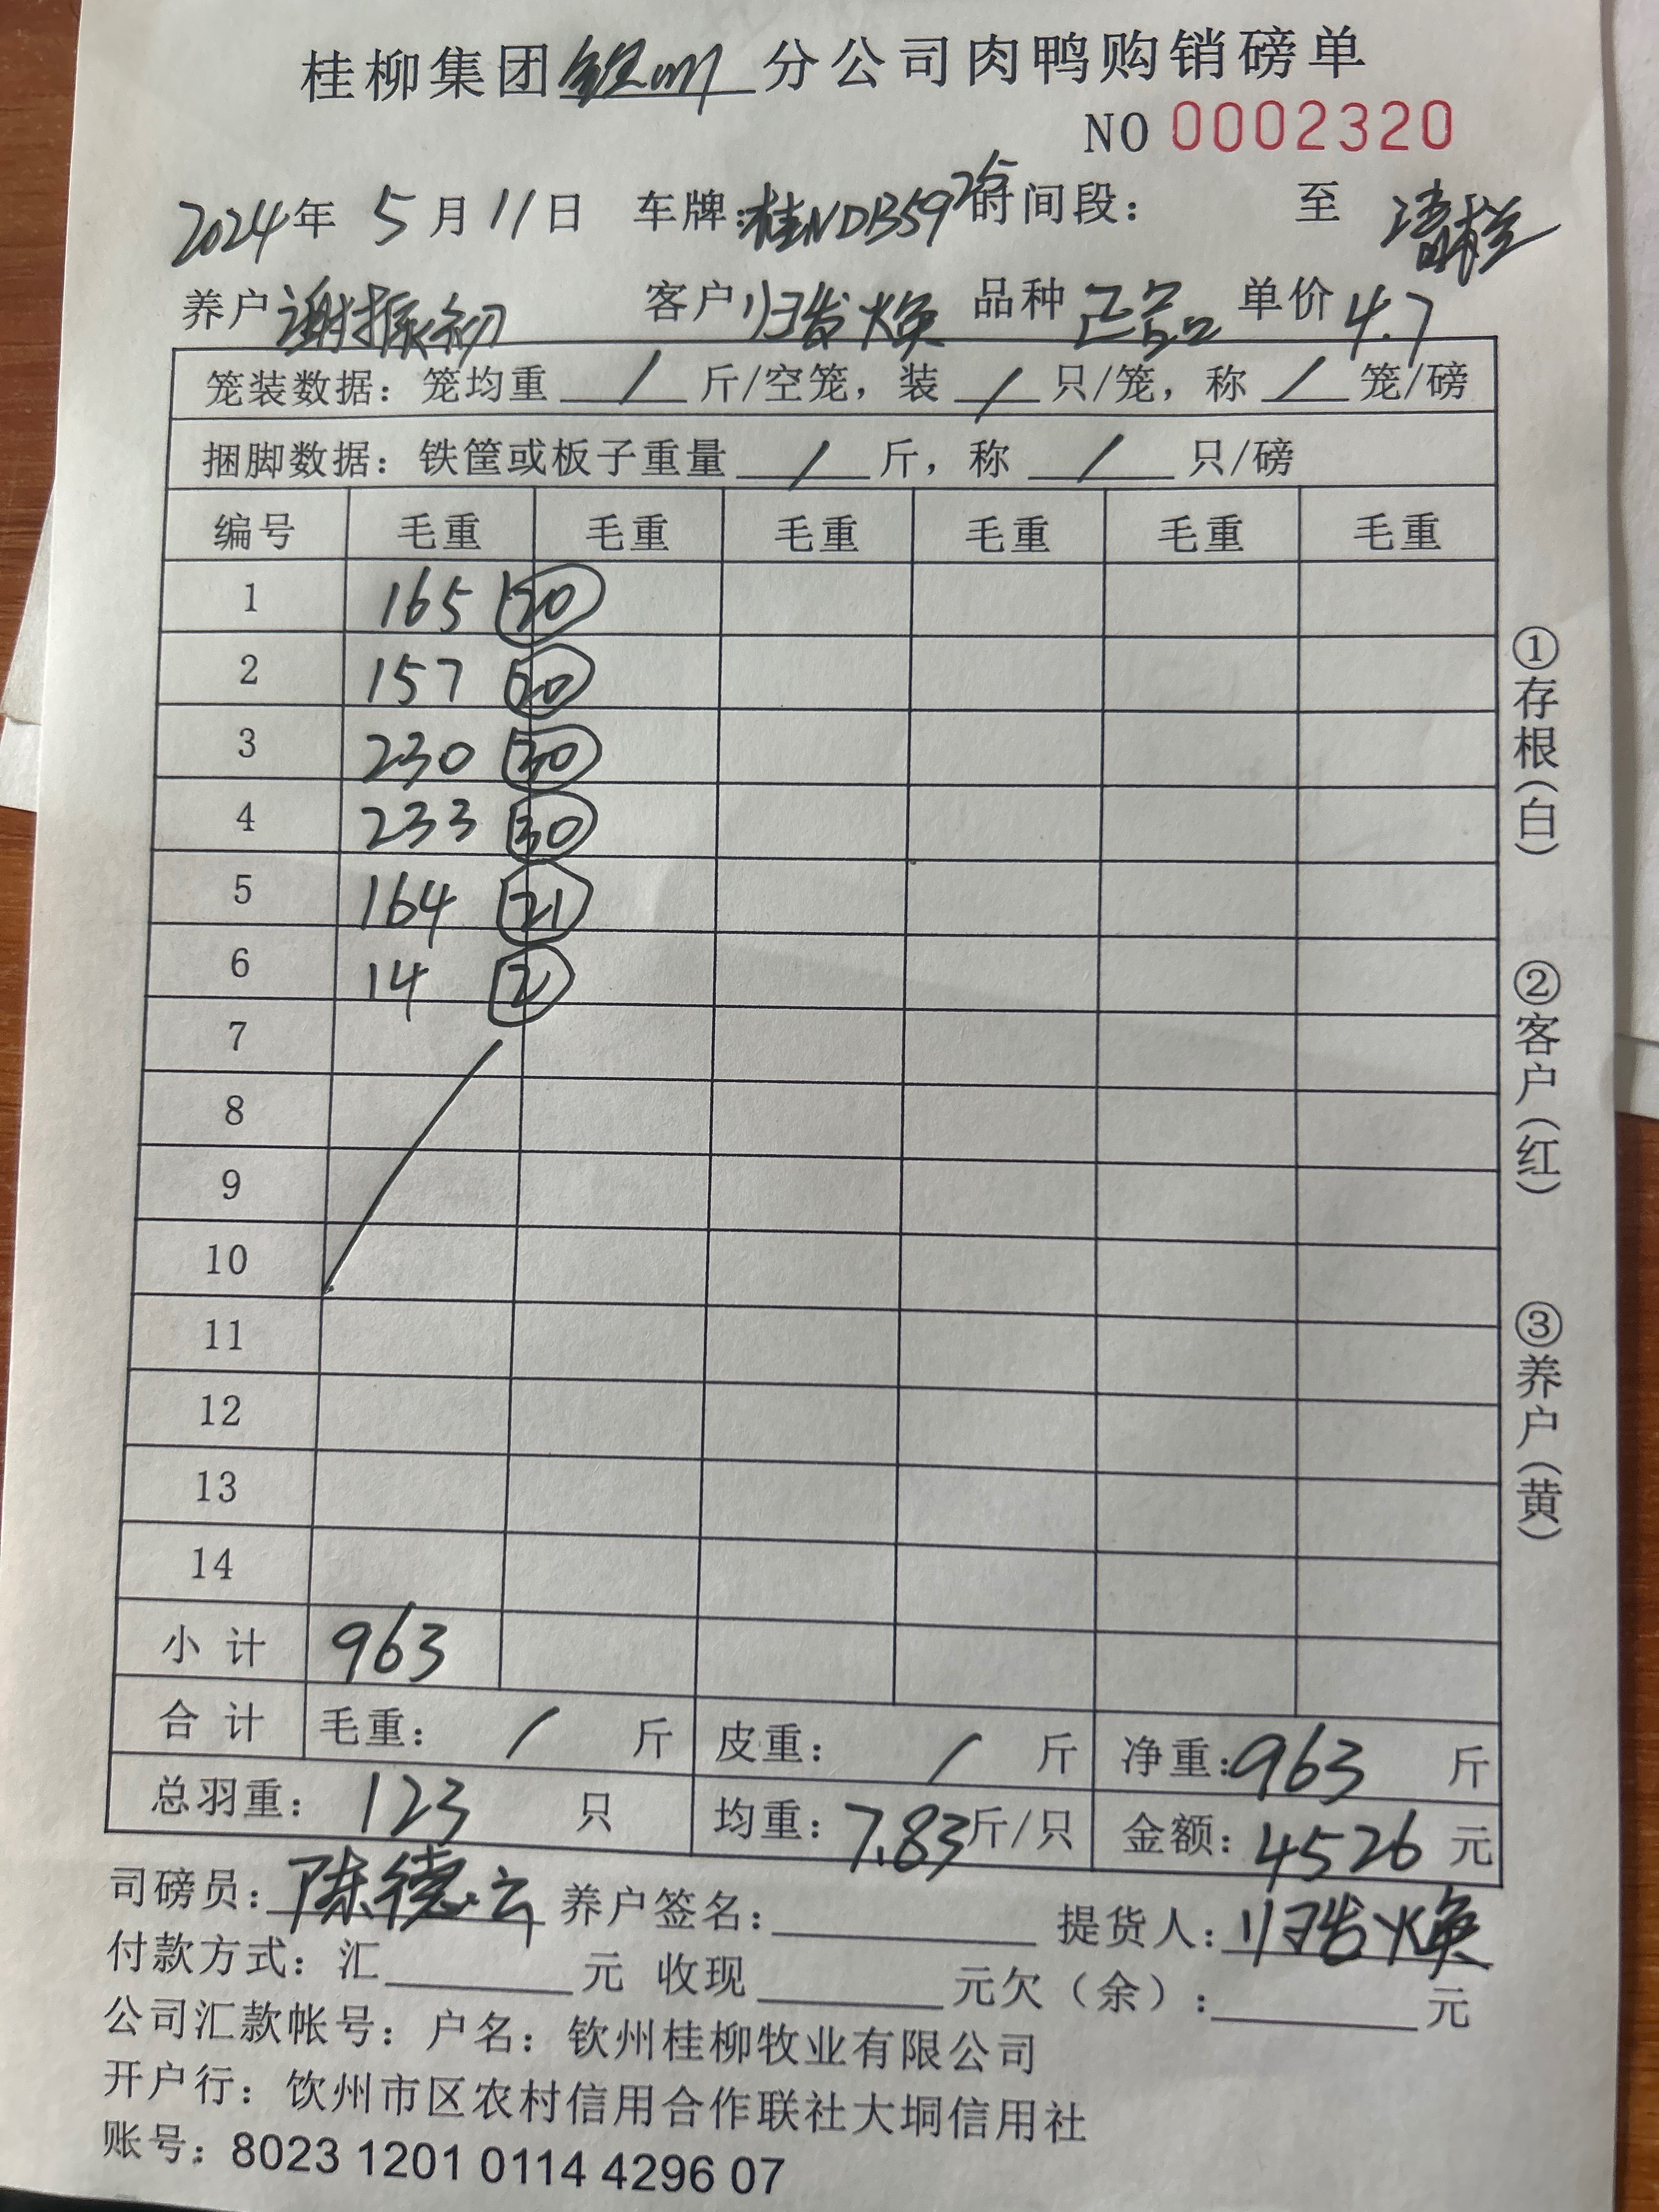 桂柳集团钦州分公司肉鸭购销磅单
NO 0002320
2024年 5月11日 车牌:桂NDB592 时间段: 至
养户 谢振初 客户 归发焕 品种 正品 单价 4.7
笼装数据: 笼均重 / 斤/空笼, 装 / 只/笼, 称 / 笼/磅
捆脚数据: 铁筐或板子重量 / 斤, 称 / 只/磅
编号 毛重 毛重 毛重 毛重 毛重 毛重
1 165 20
2 157 20
3 230 30
4 233 30
5 164 21
6 14 2
7
8
9
10
11
12
13
14
小计 963
合计 毛重: / 斤 皮重: / 斤 净重:963 斤
总羽重: 123 只 均重: 7.83斤/只 金额: 4526 元
司磅员: 陈德云 养户签名: 提货人: 归发焕
付款方式: 汇 元 收现 元欠(余): 元
公司汇款帐号: 户名: 钦州桂柳牧业有限公司
开户行: 饮州市区农村信用合作联社大垌信用社
账号: 8023 1201 0114 4296 07
①存根(白)
②客户(红)
③养户(黄)